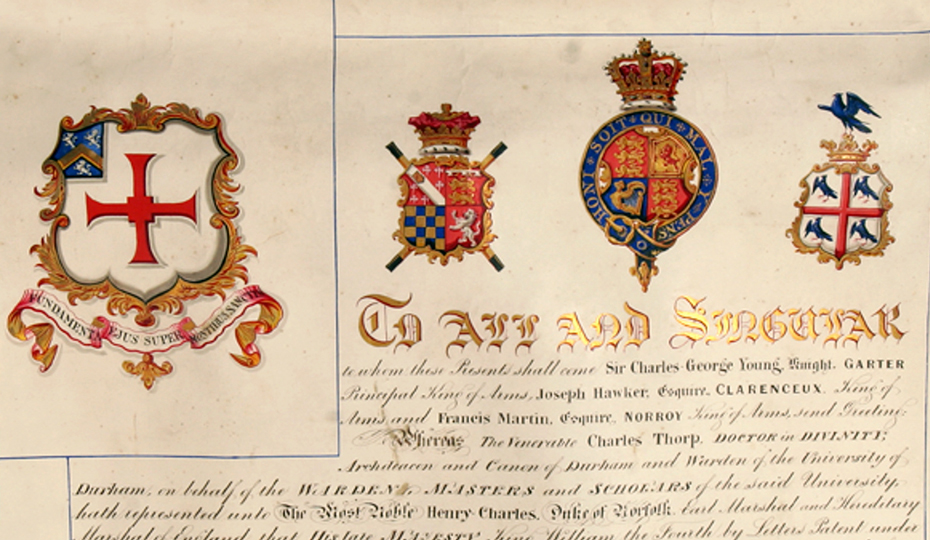 HONI SOIT QUI MAL Y PENS
FUNDAMENTA EJUS SUPER MONTIBUS SANCTIS
To ALL AND SINGULAR
to whom these Presents shall come Sir Charles George Young, Knight, GARTER
Principal King of Arms, Joseph Hawker, Esquire, CLARENCEUX, King of
Arms and Francis Martin, Esquire, NORROY King of Arms, send Greeting:
Whereas The Venerable Charles Thorp, DOCTOR in DIVINITY;
Archdeacon and Canon of Durham and Warden of the University of
Durham, on behalf of the WARDEN, MASTERS and SCHOLARS of the said University,
hath represented unto The Most Noble Henry-Charles, Duke of Norfolk, Earl Marshal and Hereditary
Marshal of England, that His late MAJESTY King William the Fourth by Letters Patent under